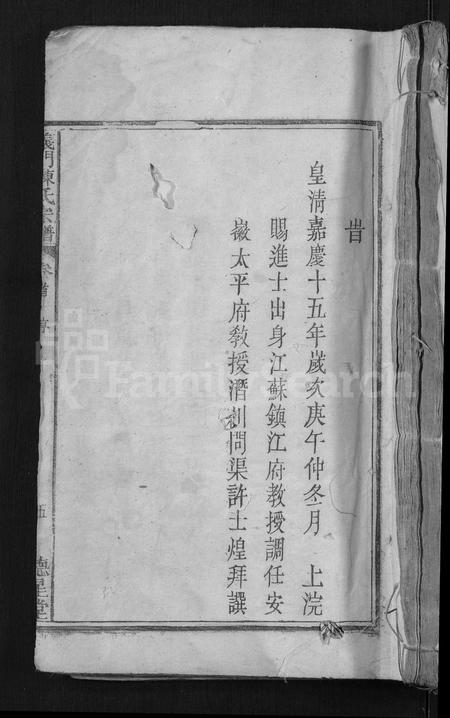 旹
皇清嘉慶十五年歲次庚午仲冬月 上浣
賜進士出身江蘇鎮江府教授調任安
徽太平府教授潛川問渠許士煌拜譔
義門陳氏宗譜 卷首 序 五 德星堂
FamilySearch